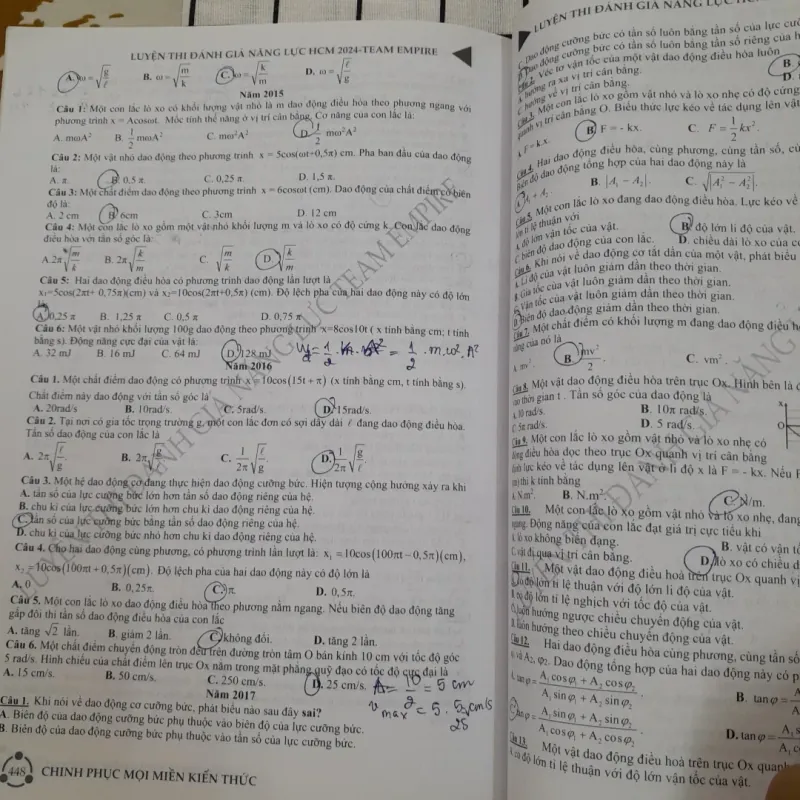 LUYỆN THI ĐÁNH GIÁ NĂNG LỰC HCM 2024-TEAM EMPIRE
A. ω = √(g/ℓ) B. ω = √(m/k) C. ω = √(k/m) D. ω = √(ℓ/g)
Năm 2015
Câu 1: Một con lắc lò xo có khối lượng vật nhỏ là m dao động điều hòa theo phương ngang với
phương trình x = Acosωt. Mốc tính thế năng ở vị trí cân bằng. Cơ năng của con lắc là:
A. mωA² B. 1/2 mωA² C. mω²A² D. 1/2 mω²A²
Câu 2: Một vật nhỏ dao động theo phương trình x = 5cos(ωt+0,5π) cm. Pha ban đầu của dao động
là:
A. π. B. 0,5 π. C. 0,25 π. D. 1,5 π.
Câu 3: Một chất điểm dao động theo phương trình x = 6cosωt (cm). Dao động của chất điểm có biên
độ là:
A. 2 cm B. 6cm C. 3cm D. 12 cm
Câu 4: Một con lắc lò xo gồm một vật nhỏ khối lượng m và lò xo có độ cứng k. Con lắc dao động
điều hòa với tần số góc là:
A. 2π√(m/k) B. 2π√(k/m) C. √(m/k) D. √(k/m)
Câu 5: Hai dao động điều hòa có phương trình dao động lần lượt là
x₁=5cos(2πt+ 0,75π)(cm) và x₂=10cos(2πt+0,5π) (cm). Độ lệch pha của hai dao động này có độ lớn
là:
A. 0,25 π B. 1,25 π C. 0,5 π D. 0,75 π
Câu 6: Một vật nhỏ khối lượng 100g dao động theo phương trình x=8cos10t ( x tính bằng cm; t tính
bằng s). Động năng cực đại của vật là:
A. 32 mJ B. 16 mJ C. 64 mJ D. 128 mJ = 1/2 . m.ω². A²
Năm 2016
Câu 1. Một chất điểm dao động có phương trình x = 10cos(15t + π) (x tính bằng cm, t tính bằng s).
Chất điểm này dao động với tần số góc là
A. 20rad/s B. 10rad/s. C. 5rad/s. D. 15rad/s.
Câu 2. Tại nơi có gia tốc trọng trường g, một con lắc đơn có sợi dây dài ℓ đang dao động điều hòa.
Tần số dao động của con lắc là
A. 2π√(ℓ/g). B. 2π√(g/ℓ). C. 1/2π √(ℓ/g). D. 1/2π √(g/ℓ).
Câu 3. Một hệ dao động cơ đang thực hiện dao động cưỡng bức. Hiện tượng cộng hưởng xảy ra khi
A. tần số của lực cưỡng bức lớn hơn tần số dao động riêng của hệ.
B. chu kì của lực cưỡng bức lớn hơn chu kì dao động riêng của hệ.
C. tần số của lực cưỡng bức bằng tần số dao động riêng của hệ.
D. chu kì của lực cưỡng bức nhỏ hơn chu kì dao động riêng của hệ.
Câu 4. Cho hai dao động cùng phương, có phương trình lần lượt là: x₁ = 10cos(100πt − 0,5π)(cm),
x₂ = 10cos(100πt + 0,5π)(cm). Độ lệch pha của hai dao động này có độ lớn là
A. 0 B. 0,25π. C. π D. 0,5π.
Câu 5. Một con lắc lò xo dao động điều hòa theo phương nằm ngang. Nếu biên độ dao động tăng
gấp đôi thì tần số dao động điều hòa của con lắc
A. tăng √2 lần. B. giảm 2 lần. C. không đổi. D. tăng 2 lần.
Câu 6. Một chất điểm chuyển động tròn đều trên đường tròn tâm O bán kính 10 cm với tốc độ góc
5 rad/s. Hình chiếu của chất điểm lên trục Ox nằm trong mặt phẳng quỹ đạo có tốc độ cực đại là
A. 15 cm/s. B. 50 cm/s. C. 250 cm/s. D. 25 cm/s. A = 10/2 = 5 cm
v max = 5 . 5 cm/s
25
Năm 2017
Câu 1. Khi nói về dao động cơ cưỡng bức, phát biểu nào sau đây sai?
A. Biên độ của dao động cưỡng bức phụ thuộc vào biên độ của lực cưỡng bức.
B. Biên độ của dao động cưỡng bức phụ thuộc vào tần số của lực cưỡng bức.
448 CHINH PHỤC MỌI MIỀN KIẾN THỨC
LUYỆN THI ĐÁNH GIÁ NĂNG LỰC
C. Dao động cưỡng bức có tần số luôn bằng tần số của lực cưỡ
D. Dao động cưỡng bức có tần số luôn bằng tần số riêng của h
Câu 2. Véc tơ vận tốc của một vật dao động điều hòa luôn
A. hướng ra xa vị trí cân bằng. B.
C. hướng về vị trí cân bằng. D.
Câu 3. Một con lắc lò xo gồm vật nhỏ và lò xo nhẹ có độ cứng
quanh vị trí cân bằng O. Biểu thức lực kéo về tác dụng lên vật
A. F = k.x. B. F = - kx. C. F = 1/2 kx².
Câu 4. Hai dao động điều hòa, cùng phương, cùng tần số, cù
Biên độ dao động tổng hợp của hai dao động này là
A. A₁ + A₂. B. |A₁ − A₂|. C. √|A₁² − A₂²|.
Câu 5. Một con lắc lò xo đang dao động điều hòa. Lực kéo về
lớn tỉ lệ thuận với
A. độ lớn vận tốc của vật. B. độ lớn li độ của vật.
C. biên độ dao động của con lắc. D. chiều dài lò xo của c
Câu 6. Khi nói về dao động cơ tắt dần của một vật, phát biểu
A. Li độ của vật luôn giảm dần theo thời gian.
B. Gia tốc của vật luôn giảm dần theo thời gian.
C. Vận tốc của vật luôn giảm dần theo thời gian.
D. Biên độ dao động giảm dần theo thời gian.
Câu 7. Một chất điểm có khối lượng m đang dao động điều h
năng của nó là
B. mv²/2. C. vm².
Câu 8. Một vật dao động điều hòa trên trục Ox. Hình bên là
thời gian t . Tần số góc của dao động là
A. 10 rad/s. B. 10π rad/s.
C. 5π rad/s. D. 5 rad/s.
x
O
Câu 9. Một con lắc lò xo gồm vật nhỏ và lò xo nhẹ có
động điều hòa dọc theo trục Ox quanh vị trí cân bằng
lực kéo về tác dụng lên vật ở li độ x là F = - kx. Nếu F
thì k tính bằng
A. N.m². B. N.m². C. N/m.
Câu 10. Một con lắc lò xo gồm vật nhỏ và lò xo nhẹ, đang
ngang. Động năng của con lắc đạt giá trị cực tiểu khi
A. lò xo không biến dạng. B. vật có vận tố
C. vật đi qua vị trí cân bằng. D. lò xo có chiều d
Câu 11. Một vật dao động điều hoà trên trục Ox quanh vị
A. độ lớn tỉ lệ thuận với độ lớn li độ của vật.
B. độ lớn tỉ lệ nghịch với tốc độ của vật.
C. luôn hướng ngược chiều chuyển động của vật.
D. luôn hướng theo chiều chuyển động của vật.
Câu 12. Hai dao động điều hòa cùng phương, cùng tần số
và A₂, φ₂. Dao động tổng hợp của hai dao động này có p
A. tanφ = (A₁cosφ₁ + A₂cosφ₂)/(A₁sinφ₁ + A₂sinφ₂). B. tanφ =
C. tanφ = (A₁sinφ₁ + A₂sinφ₂)/(A₁cosφ₁ + A₂cosφ₂). D. tanφ =
Câu 13. Một vật dao động điều hoà trên trục Ox quanh
A. có độ lớn tỉ lệ thuận với độ lớn vận tốc của vật.